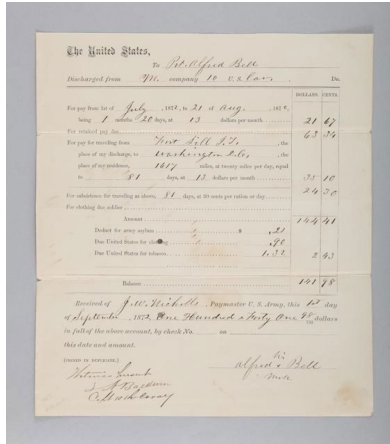 The United States,
To Pvt. Alfred Bell
Discharged from "M" company 10 Cav. Dr.
DOLLARS CENTS
For pay from 1st of July, 1872, to 21 of Aug, 1872,
being 1 months 20 days, at 13 dollars per month 21 67
For retained pay due 63 34
For pay for traveling from Fort Sill I.T., the
place of my discharge, to Washington, the
place of my residence, 1617 miles, at twenty miles per day, equal
to 81 days, at 13 dollars per month 35 10
For subsistence for traveling as above, 81 days, at 30 cents per ration or day 24 30
For clothing due soldier
Amount 144 41
Deduct for army asylum .21
Due United States for clothing .90
Due United States for tobacco 1.32 2 43
Balance 141 98
Received of J. W. Nicholls, Paymaster U. S. Army, this 12 day
of September, 1872, One Hundred & Forty One 98/100 dollars
in full of the above account, by check No. on
this date and amount.
[SIGNED IN DUPLICATE.]
Witness
his
Alfred x Bell
mark